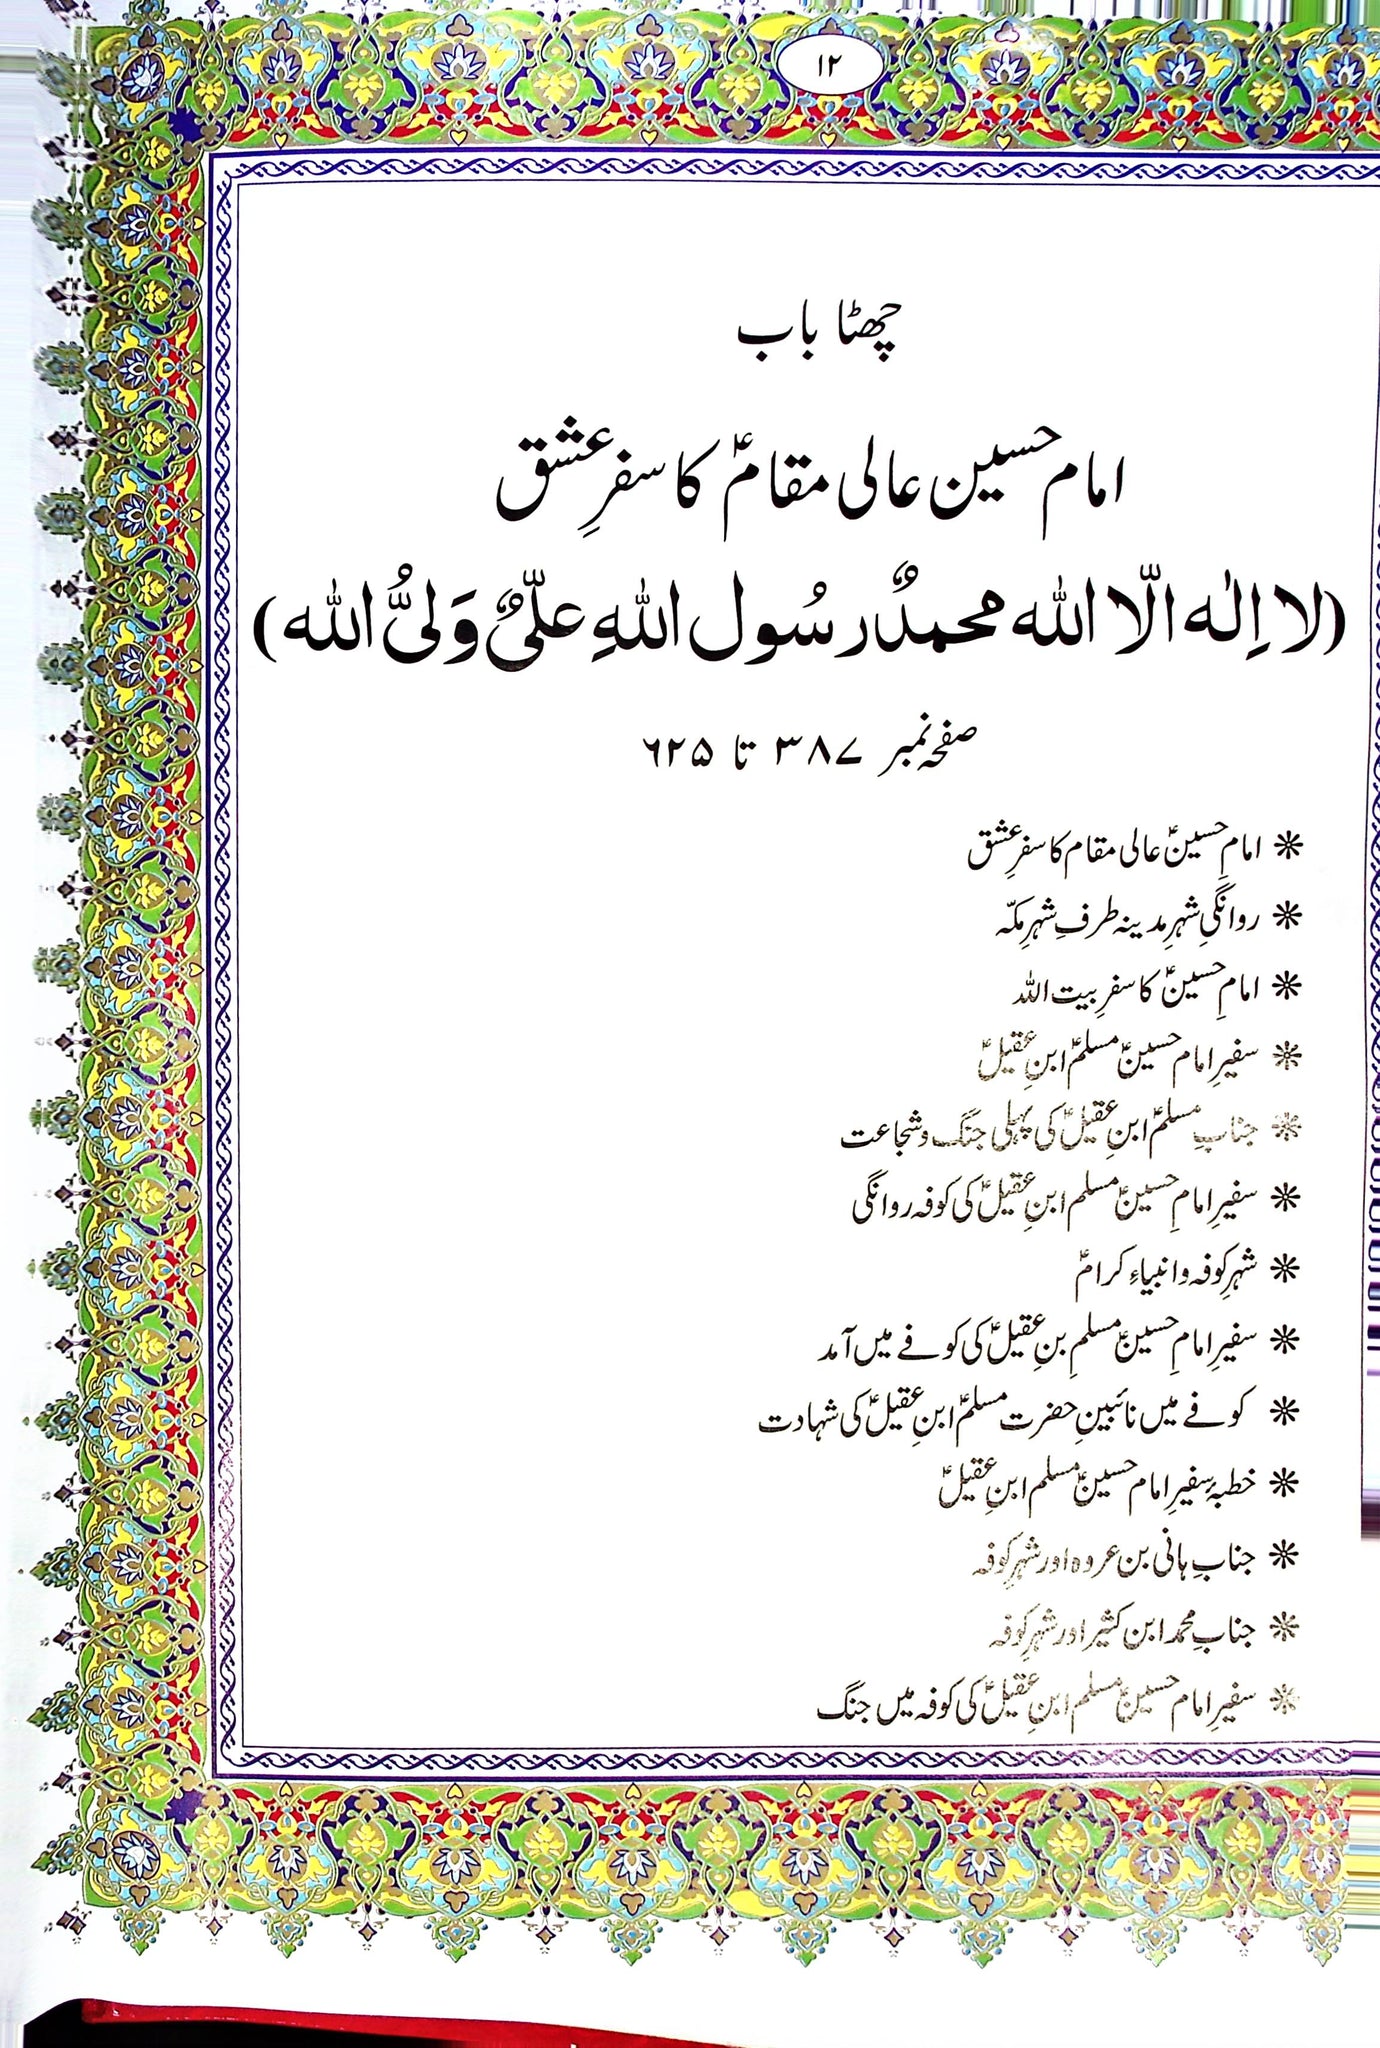 ۱۲
چھٹا باب
امام حسین عالی مقامؑ کا سفرِ عشق
(لا اِلٰہ الّا اللہ محمدٌ رسُول اللہِ علیٌّ وَلیُّ اللہ)
صفحہ نمبر ۳۸۷ تا ۶۲۵
❋ امامِ حسینؑ عالی مقام کا سفرِ عشق
❋ روانگیِ شہرِ مدینہ طرفِ شہرِ مکّہ
❋ امامِ حسینؑ کا سفرِ بیت اللہ
❋ سفیرِ امام حسینؑ مسلمؑ ابنِ عقیلؑ
❋ جنابِ مسلمؑ ابنِ عقیلؑ کی پہلی جنگ و شجاعت
❋ سفیرِ امامِ حسینؑ مسلم ابنِ عقیلؑ کی کوفہ روانگی
❋ شہرِ کوفہ و انبیاءِ کرامؑ
❋ سفیرِ امامِ حسینؑ مسلمِ بنِ عقیلؑ کی کوفے میں آمد
❋ کوفے میں نائبینِ حضرت مسلمؑ ابنِ عقیلؑ کی شہادت
❋ خطبۂ سفیرِ امام حسینؑ مسلم ابنِ عقیلؑ
❋ جنابِ ہانی بن عروہ اور شہرِ کوفہ
❋ جنابِ محمد ابن کثیر اور شہرِ کوفہ
❋ سفیرِ امام حسینؑ مسلم ابنِ عقیلؑ کی کوفہ میں جنگ